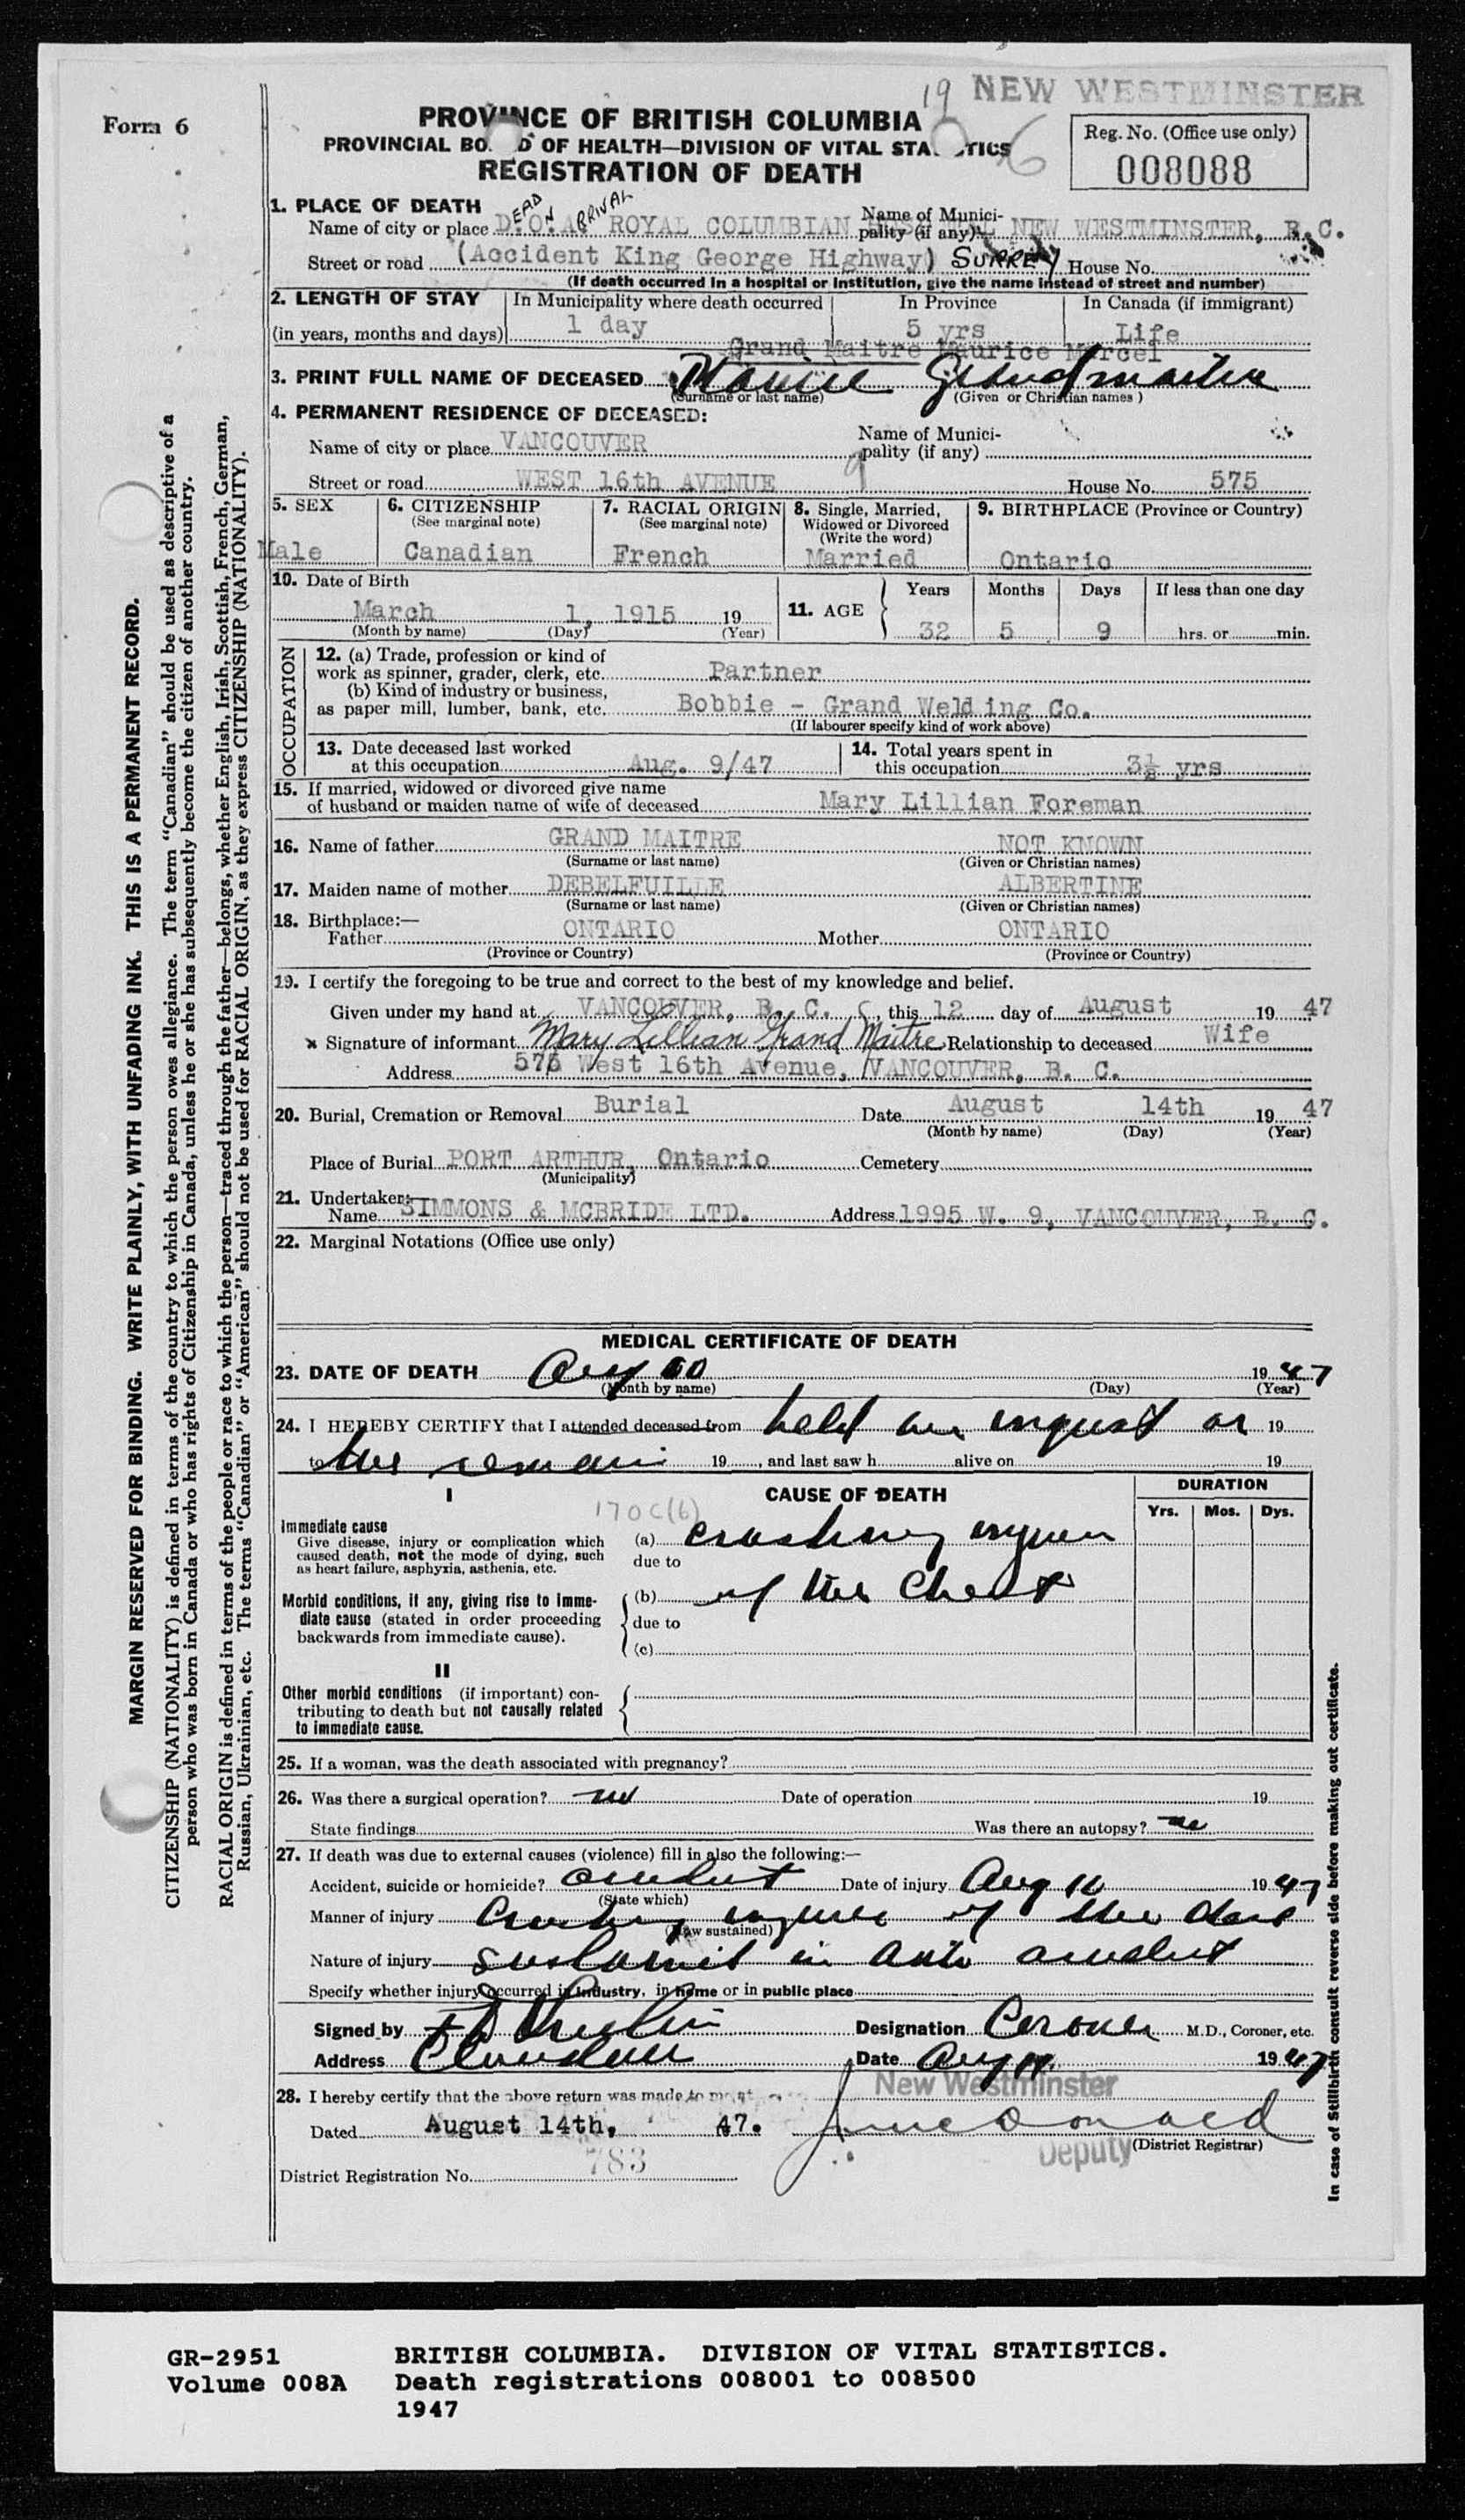 Form 6
19 NEW WESTMINSTER
PROVINCE OF BRITISH COLUMBIA
PROVINCIAL BO D OF HEALTH—DIVISION OF VITAL STA TICS
REGISTRATION OF DEATH
6
Reg. No. (Office use only)
008088
1. PLACE OF DEATH
Name of city or place D.O.A. DEAD ON ARRIVAL ROYAL COLUMBIAN Name of Municipality (if any) NEW WESTMINSTER, B.C.
Street or road (Accident King George Highway) SURREY House No.
(If death occurred in a hospital or institution, give the name instead of street and number)
2. LENGTH OF STAY In Municipality where death occurred In Province In Canada (if immigrant)
(in years, months and days) 1 day 5 yrs Life
Grand Maitre Maurice Marcel
3. PRINT FULL NAME OF DECEASED Grandmaitre
(Surname or last name) (Given or Christian names)
4. PERMANENT RESIDENCE OF DECEASED:
Name of city or place VANCOUVER Name of Municipality (if any)
9
Street or road WEST 16th AVENUE House No. 575
5. SEX 6. CITIZENSHIP (See marginal note) 7. RACIAL ORIGIN (See marginal note) 8. Single, Married, Widowed or Divorced (Write the word) 9. BIRTHPLACE (Province or Country)
Male Canadian French Married Ontario
10. Date of Birth 11. AGE Years Months Days If less than one day
March 1, 1915 19 32 5 9 hrs. or min.
(Month by name) (Day) (Year)
OCCUPATION
12. (a) Trade, profession or kind of
work as spinner, grader, clerk, etc. Partner
(b) Kind of industry or business,
as paper mill, lumber, bank, etc. Bobbie - Grand Welding Co.
(If labourer specify kind of work above)
13. Date deceased last worked
at this occupation Aug. 9/47
14. Total years spent in
this occupation 3½ yrs
15. If married, widowed or divorced give name
of husband or maiden name of wife of deceased Mary Lillian Foreman
16. Name of father GRAND MAITRE NOT KNOWN
(Surname or last name) (Given or Christian names)
17. Maiden name of mother DEBELFUILLE ALBERTINE
(Surname or last name) (Given or Christian names)
18. Birthplace:—
Father ONTARIO Mother ONTARIO
(Province or Country) (Province or Country)
19. I certify the foregoing to be true and correct to the best of my knowledge and belief.
Given under my hand at VANCOUVER, B. C., this 12 day of August 19 47
x Signature of informant Mary Lillian Grand Maitre Relationship to deceased Wife
Address 575 West 16th Avenue, VANCOUVER, B. C.
20. Burial, Cremation or Removal Burial Date August 14th 19 47
(Month by name) (Day) (Year)
Place of Burial PORT ARTHUR, Ontario Cemetery
(Municipality)
21. Undertaker:—
Name SIMMONS & MCBRIDE LTD. Address 1995 W. 9, VANCOUVER, B. C.
22. Marginal Notations (Office use only)
MEDICAL CERTIFICATE OF DEATH
23. DATE OF DEATH Aug 10 1947
(Month by name) (Day) (Year)
24. I HEREBY CERTIFY that I attended deceased from held an inquest on 19
to the remain 19 , and last saw h alive on 19
I CAUSE OF DEATH DURATION
170c(6) Yrs. Mos. Dys.
Immediate cause
Give disease, injury or complication which
caused death, not the mode of dying, such
as heart failure, asphyxia, asthenia, etc.
(a) crushing injuries
due to
Morbid conditions, if any, giving rise to immediate cause (stated in order proceeding
backwards from immediate cause).
(b) of the Chest
due to
(c)
II
Other morbid conditions (if important) contributing to death but not causally related
to immediate cause.
25. If a woman, was the death associated with pregnancy?
26. Was there a surgical operation? no Date of operation 19
State findings Was there an autopsy? no
27. If death was due to external causes (violence) fill in also the following:—
Accident, suicide or homicide? accident Date of injury Aug 10 1947
(State which)
Manner of injury Crushing injuries of the chest
(How sustained)
Nature of injury sustained in auto accident
Specify whether injury occurred in industry, in home or in public place
Signed by Designation Coroner M.D., Coroner, etc.
Address Cloverdale Date Aug 11 1947
28. I hereby certify that the above return was made to me at New Westminster
Dated August 14th, 47.
Deputy (District Registrar)
District Registration No. 783
MARGIN RESERVED FOR BINDING. WRITE PLAINLY, WITH UNFADING INK. THIS IS A PERMANENT RECORD.
CITIZENSHIP (NATIONALITY) is defined in terms of the country to which the person owes allegiance. The term "Canadian" should be used as descriptive of a
person who was born in Canada or who has rights of Citizenship in Canada, unless he or she has subsequently become the citizen of another country.
RACIAL ORIGIN is defined in terms of the people or race to which the person—traced through the father—belongs, whether English, Irish, Scottish, French, German,
Russian, Ukrainian, etc. The terms "Canadian" or "American" should not be used for RACIAL ORIGIN, as they express CITIZENSHIP (NATIONALITY).
In case of Stillbirth consult reverse side before making out certificate.
GR-2951 BRITISH COLUMBIA. DIVISION OF VITAL STATISTICS.
Volume 008A Death registrations 008001 to 008500
1947